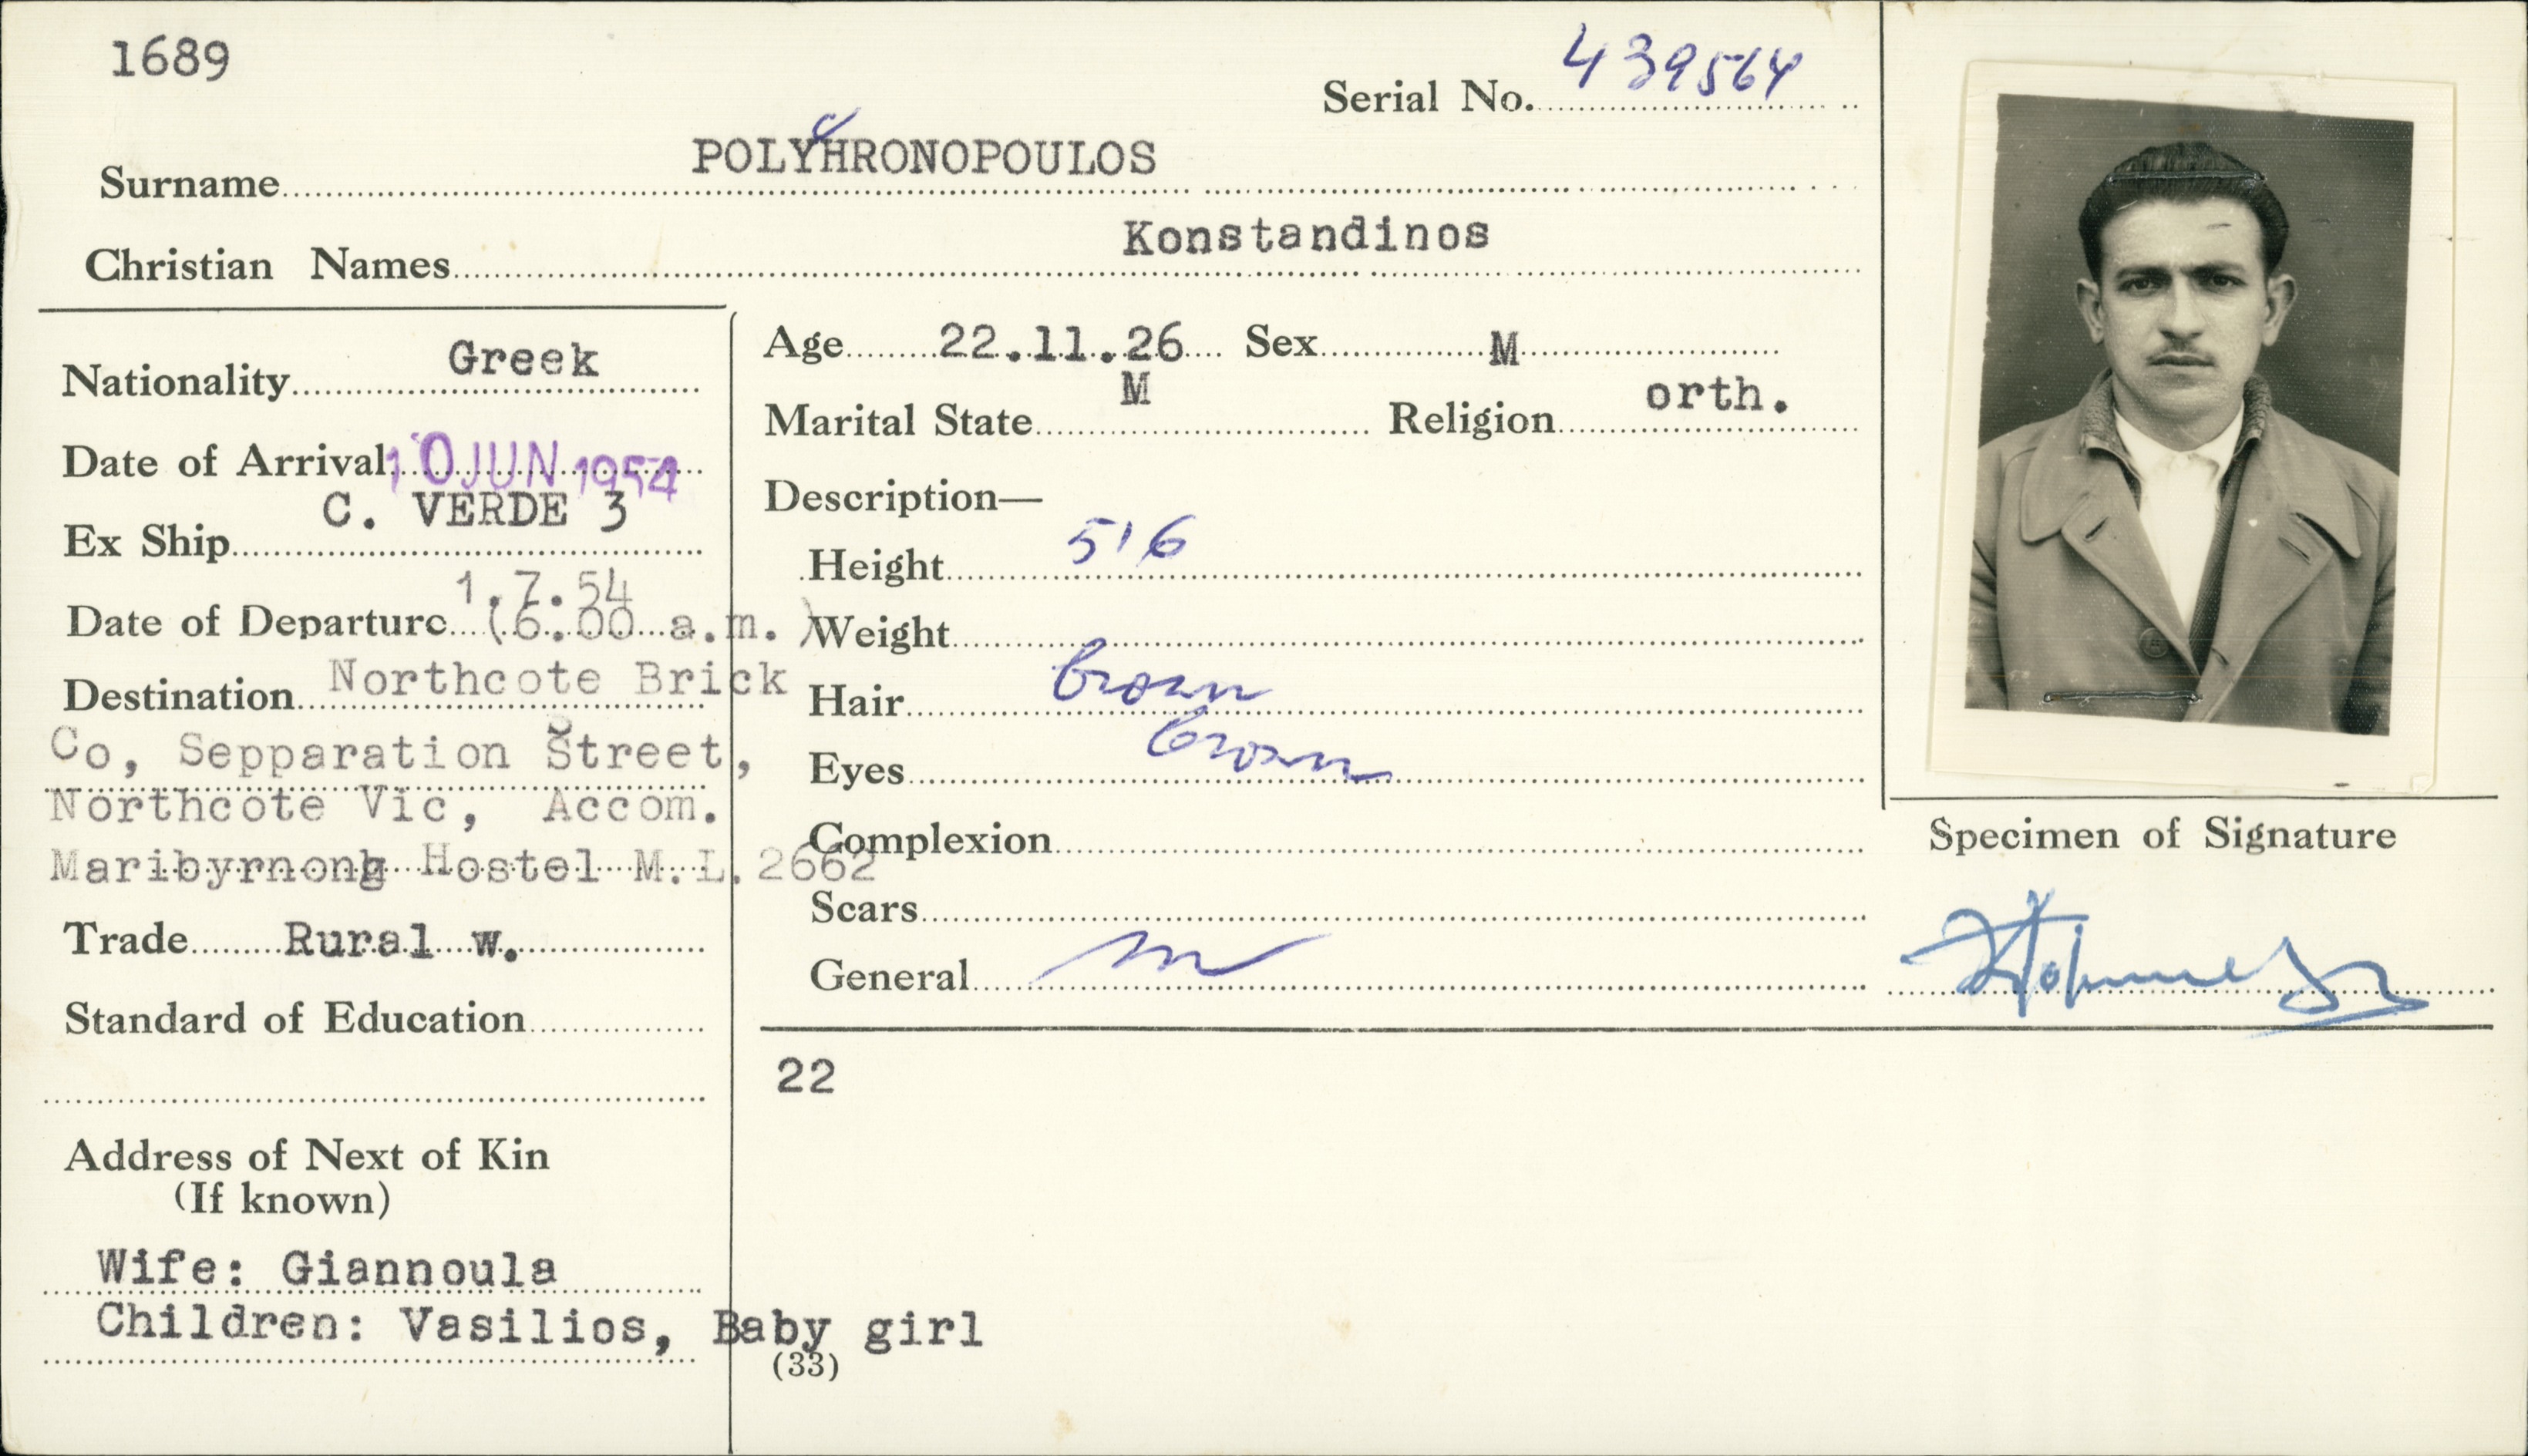 1689
Serial No. 439564
Surname POLYcHRONOPOULOS
Christian Names Konstandinos
Nationality Greek
Date of Arrival 10 JUN 1954
Ex Ship C. VERDE 3
Date of Departure 1.7.54 (6.00 a.m.)
Destination Northcote Brick
Co, Sepparation Street,
Northcote Vic, Accom.
Maribyrnong Hostel M.L. 2662
Trade Rural w.
Standard of Education
Address of Next of Kin
(If known)
Wife: Giannoula
Children: Vasilios, Baby girl
Age 22.11.26 Sex M
Marital State M Religion orth.
Description—
Height 5'6
Weight
Hair brown
Eyes brown
Complexion
Scars
General
22
(33)
Specimen of Signature